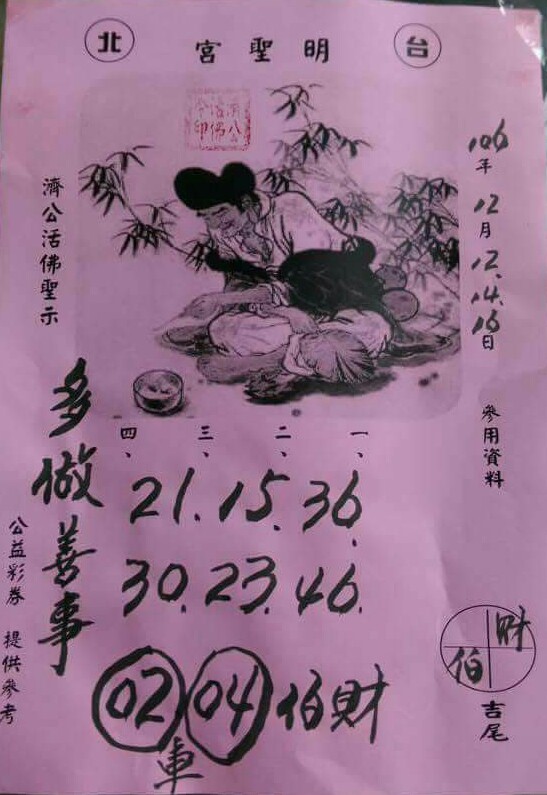 台 明聖宮 北
濟公活佛令印
106年12月12.14.16日 參用資料
濟公活佛聖示
一、二、三、四、
21、15、36、
30.23.46.
02 04 伯財
車
多做善事
財
伯
吉尾
公益彩券 提供參考